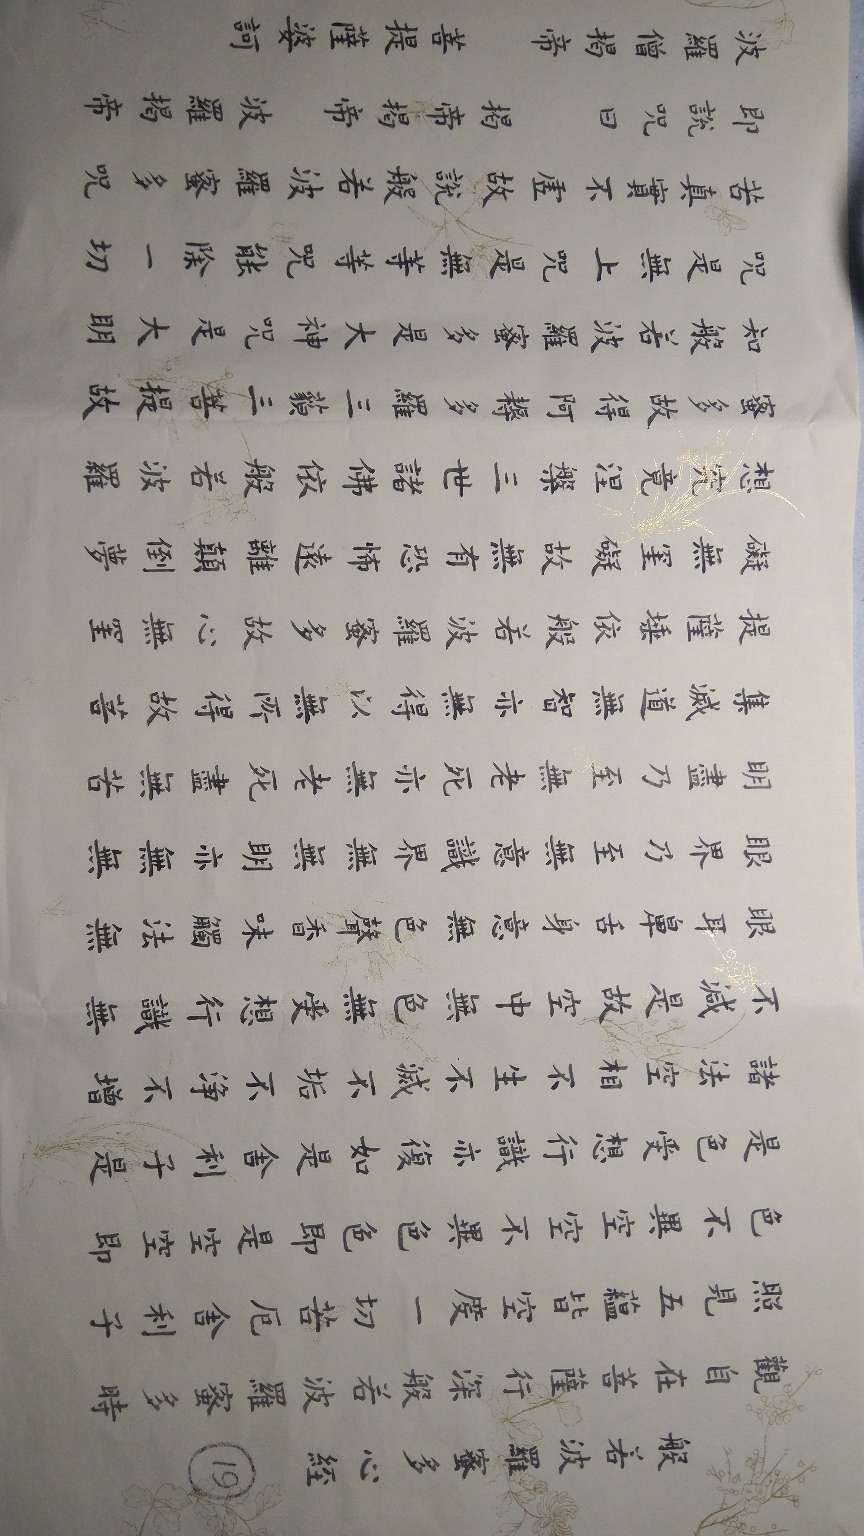 般若波羅蜜多心経
19
觀自在菩薩行深般若波羅蜜多時
照見五蘊皆空度一切苦厄舍利子
色不異空空不異色色即是空空即
是色受想行識亦復如是舍利子是
諸法空相不生不滅不垢不淨不增
不減是故空中無色無受想行識無
眼耳鼻舌身意無色聲香味觸法無
眼界乃至無意識界無無明亦無無
明盡乃至無老死亦無老死盡無苦
集滅道無智亦無得以無所得故菩
提薩埵依般若波羅蜜多故心無罣
礙無罣礙故無有恐怖遠離顛倒夢
想究竟涅槃三世諸佛依般若波羅
蜜多故得阿耨多羅三藐三菩提故
知般若波羅蜜多是大神咒是大明
咒是無上咒是無等等咒能除一切
苦真實不虛故說般若波羅蜜多咒
即說咒曰 揭帝揭帝 波羅揭帝
波羅僧揭帝 菩提薩婆訶